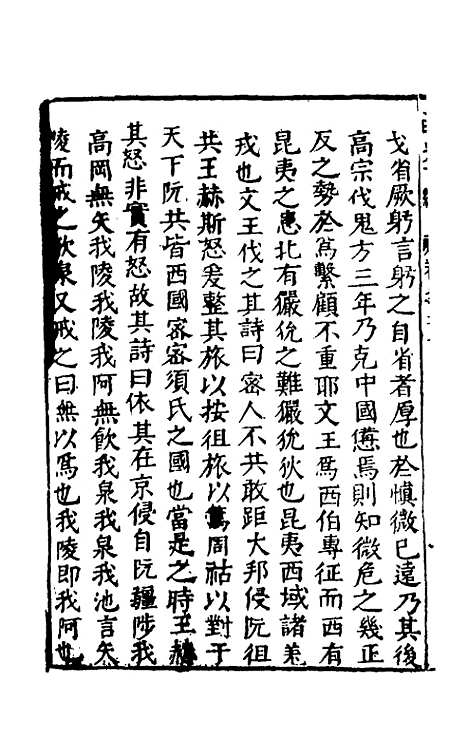 戈省厥躬言躬之自省者厚也於慎微已遠乃其後
高宗伐鬼方三年乃克中國憊焉則知微危之幾正
反之勢於爲繫顧不重耶文王爲西伯專征而西有
昆夷之患北有玁狁之難玁狁狄也昆夷西域諸羌
戎也文王伐之其詩曰密人不共敢距大邦侵阮徂
共王赫斯怒爰整其旅以按徂旅以篤周祜以對于
天下阮共皆西國密密須氏之國也當是之時王赫
其怒非實有怒故其詩曰依其在京侵自阮疆陟我
高岡無矢我陵我陵我阿無飲我泉我泉我池言矢
陵而戒之飲泉又戒之曰無以爲也我陵即我阿也